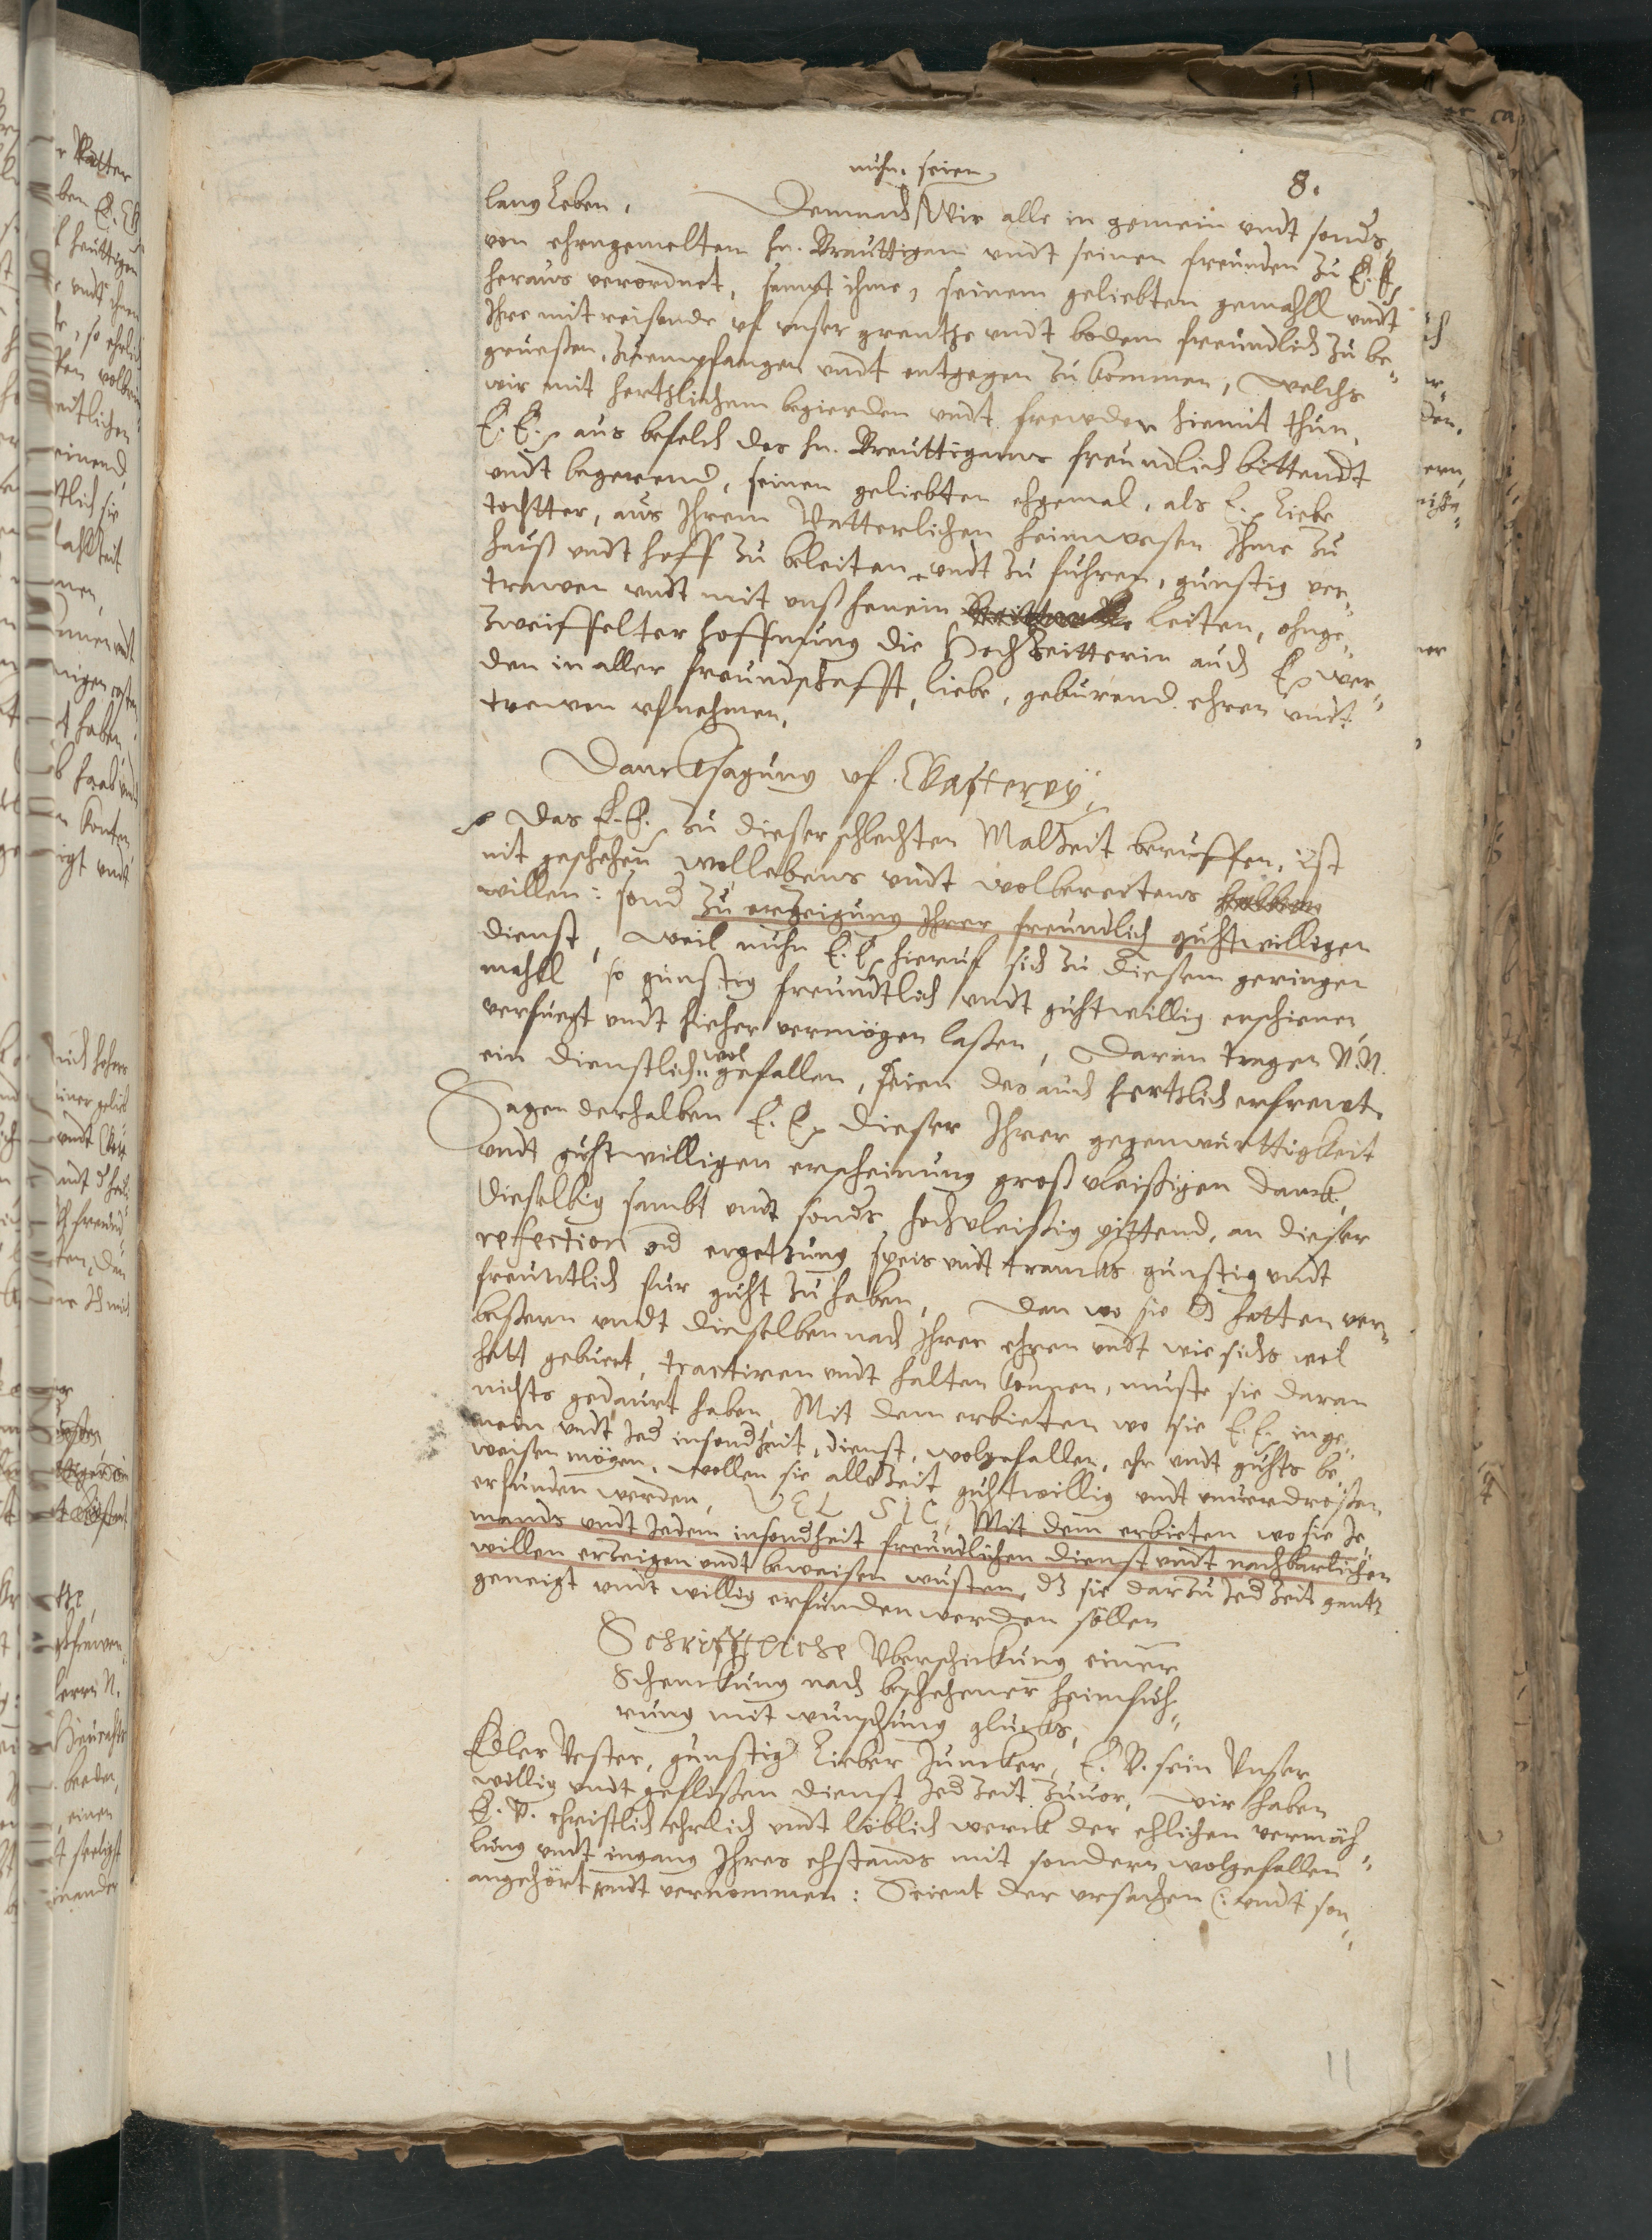 8.
nuhn seien
lang Leben. Demnach Wir alle in gemein vndt sonders
von ehrngemelten hn. Brauttigam vndt seinen freunden zu E. E.
heraus verordnet, sampt ihme, seinem geliebten gemahll vndt
Ihre mitreisende vf vnser grentze vndt bodem freundlich zu be„
gruessen, zu empfangen vndt entgegen zu kommen, welchs
wir mit hertzlichem begierden vndt frewden hiemit thun,
E. E. aus befelch des hn. Breuttigams freundlich bittendt
vndt begerend, seinen geliebten ehgemal, als E. Liebe
tochtter, aus Ihrem Vatterlichen heimwesen Ihme zu
hauß vndt hoff zu beleiten vndt zu fuhren, gunstig ver„
trawen vndt mit vnß henein leiten, ohnge„
zweiffelter hoffnung die Hochzeitterin auch E. wer„
den in aller freundschafft, liebe, geburend ehren vndt
trewen vfnehmen.
Dancksagung vf Gasterey
Das E. E. zu dieser schlechten Malzeit beruffen, ist
nit geschehen wollebens vndt wolbereitens halben
willen: sond zu erzeigung Ihrer freundlich guhtwilligen
dienst, Weil nuhn E. E. hieruf sich zu diesem geringen
mahll so gunstig freundtlich vndt guhtwillig erschienen
verfuegt vndt hieher vermögen lassen, Daran tragen N. N.
ein dienstlich„ wol gefallen, seien des auch hertzlich erfrewt.
Sagen derhalben E. E. dieser Ihrer gegenwurttigkeit
vndt guhtwilligen erscheinung groß vleissigen danck,
Dieselbig sambt vndt sonders hochvleissig pittend, an dieser
refection vnd ergetzung speis vndt trancks gunstig vndt
freuntlich fur guht zu haben. Dan wo sie es hetten ver„
bessern vndt dieselben nach Ihrer ehren vndt wie sichs wol
hatt geburt, tractiren vndt halten konnen, muste sie daran
nichts gedaurt haben. Mit dem erbieten wo sie E. E. in ge„
mein vndt Jed insondheit, dienst, wolgefallen, ehr vndt guhts be„
weisen mögen, wollen sie allezeit guhtwillig vndt vnuerdrossen
erfunden werden, VEL SIC, Mit dem erbieten wo sie Je„
mands vndt Jedem insondheit freundlichen dienst vndt nachbarlichen
willen erzeigen vndt beweisen wusten, dz sie darzu Jed Zeit gantz
geneigt vndt willig erfunden werden söllen
Schrifftliche Vberschickung einer
Schenckung nach beschehener heimfuh„
rung mit wunschung glucks,
Edler Vester, gunstig Lieber Juncker, E. V. sein Vnser
willig vndt geflissen dienst Jed Zeit zuuor, wir haben
E. V. christlich ehrlich vndt löblich werck der ehlichen vermäh„
lung vndt ingang Ihres ehstands mit sondern wolgefallen
angehört vndt vernommen: Seient der vrsachen (: vndt son„
11